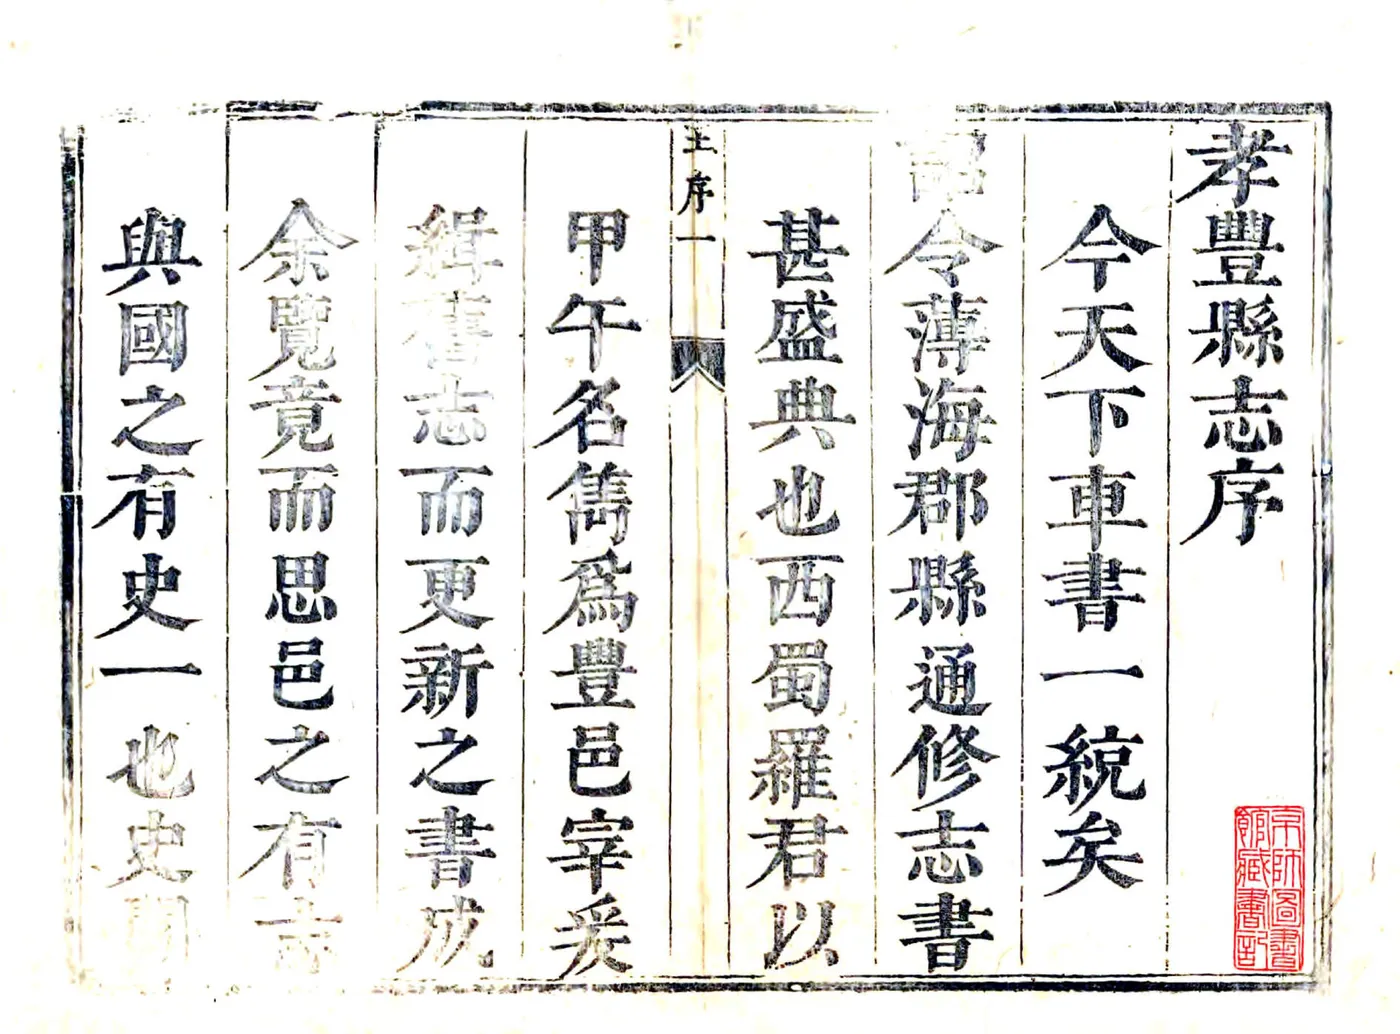 孝豐縣志序
今天下車書一統矣
詔令薄海郡縣通修志書
甚盛典也西蜀羅君以
王序一
甲午名雋爲豐邑宰爰
緝舊志而更新之書成
余覽竟而思邑之有志
與國之有史一也史關
京師圖書
館藏書記